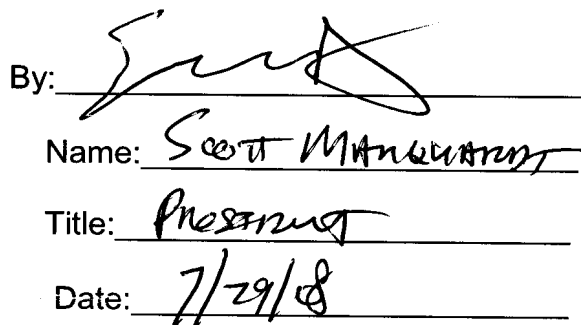 By:
Name: Scott Marquardt
Title: President
Date: 7/29/08